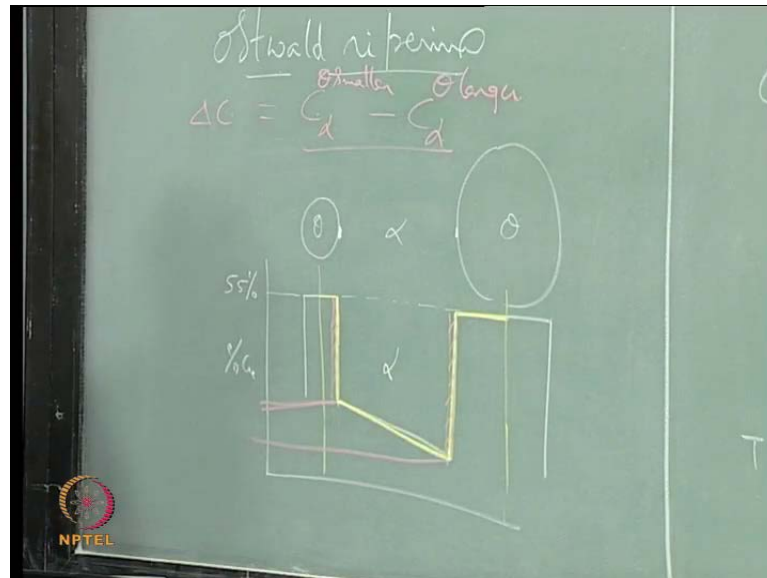 Ostwald ripening
ΔC = C_α^{θ smaller} − C_α^{θ larger}
θ α θ
55%
%Cu α
T
NPTEL